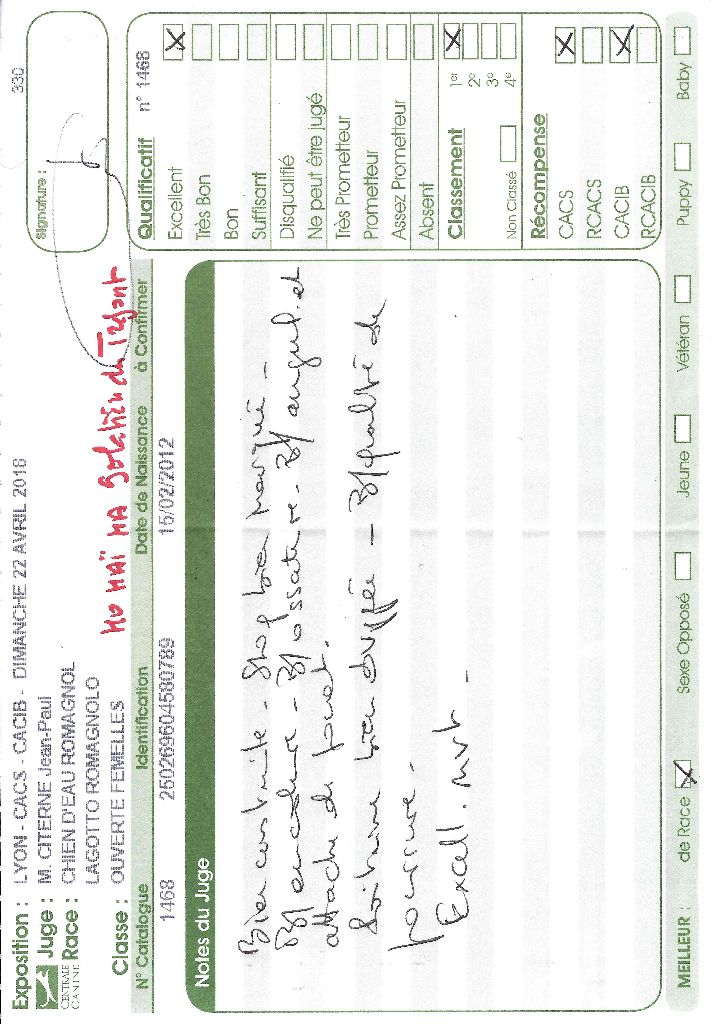 Exposition : LYON - CACS - CACIB - DIMANCHE 22 AVRIL 2018
330
Juge : M. CITERNE Jean-Paul
CENTRALE CANINE
Race : CHIEN D'EAU ROMAGNOL
LAGOTTO ROMAGNOLO
Classe : OUVERTE FEMELLES
Signature :
N° Catalogue
Identification
Date de Naissance
à Confirmer
1468
250269604580789
15/02/2012
Notes du Juge
Bien construite - Stop bien marqué -
encolure - ossature - angul. et
attache de fouet.
bien - qualité de
fourrure -
Excell. mvt -
Qualificatif n° 1468
Excellent X
Très Bon
Bon
Suffisant
Disqualifié
Ne peut être jugé
Très Prometteur
Prometteur
Assez Prometteur
Absent
Classement
1er X
2e
3e
4e
Non Classé
Récompense
CACS X
RCACS
CACIB X
RCACIB
MEILLEUR : de Race X Sexe Opposé Jeune Vétéran Puppy Baby